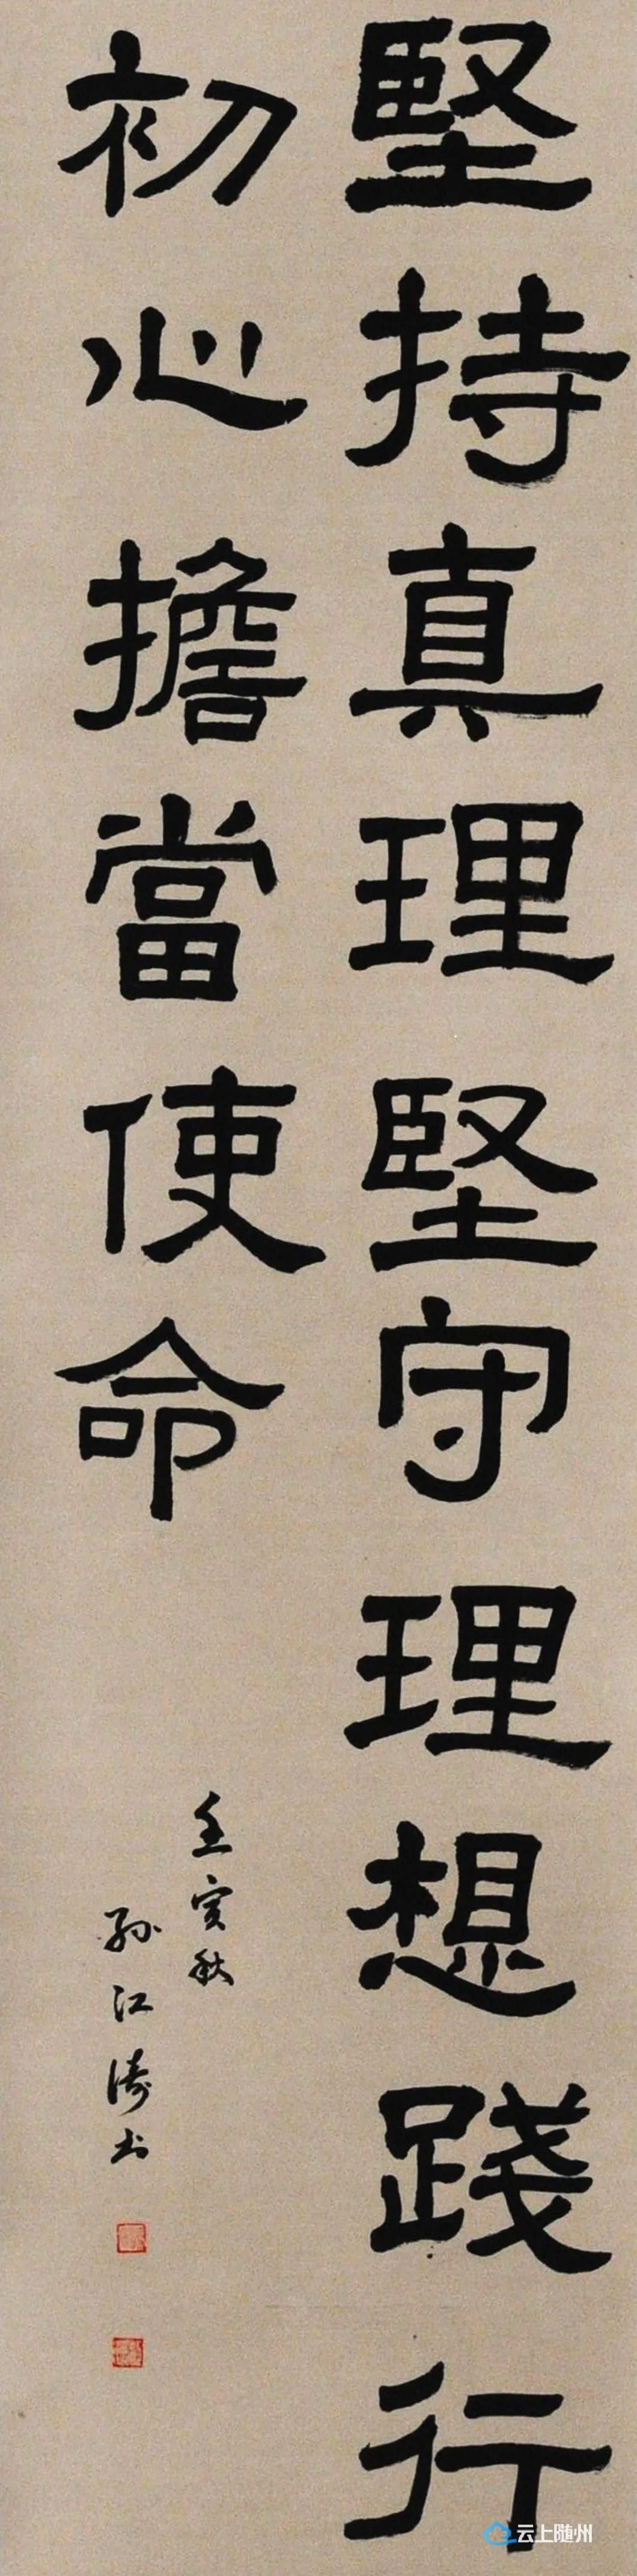 堅持真理堅守理想踐行
初心擔當使命
壬寅秋
孙江涛书
云上随州